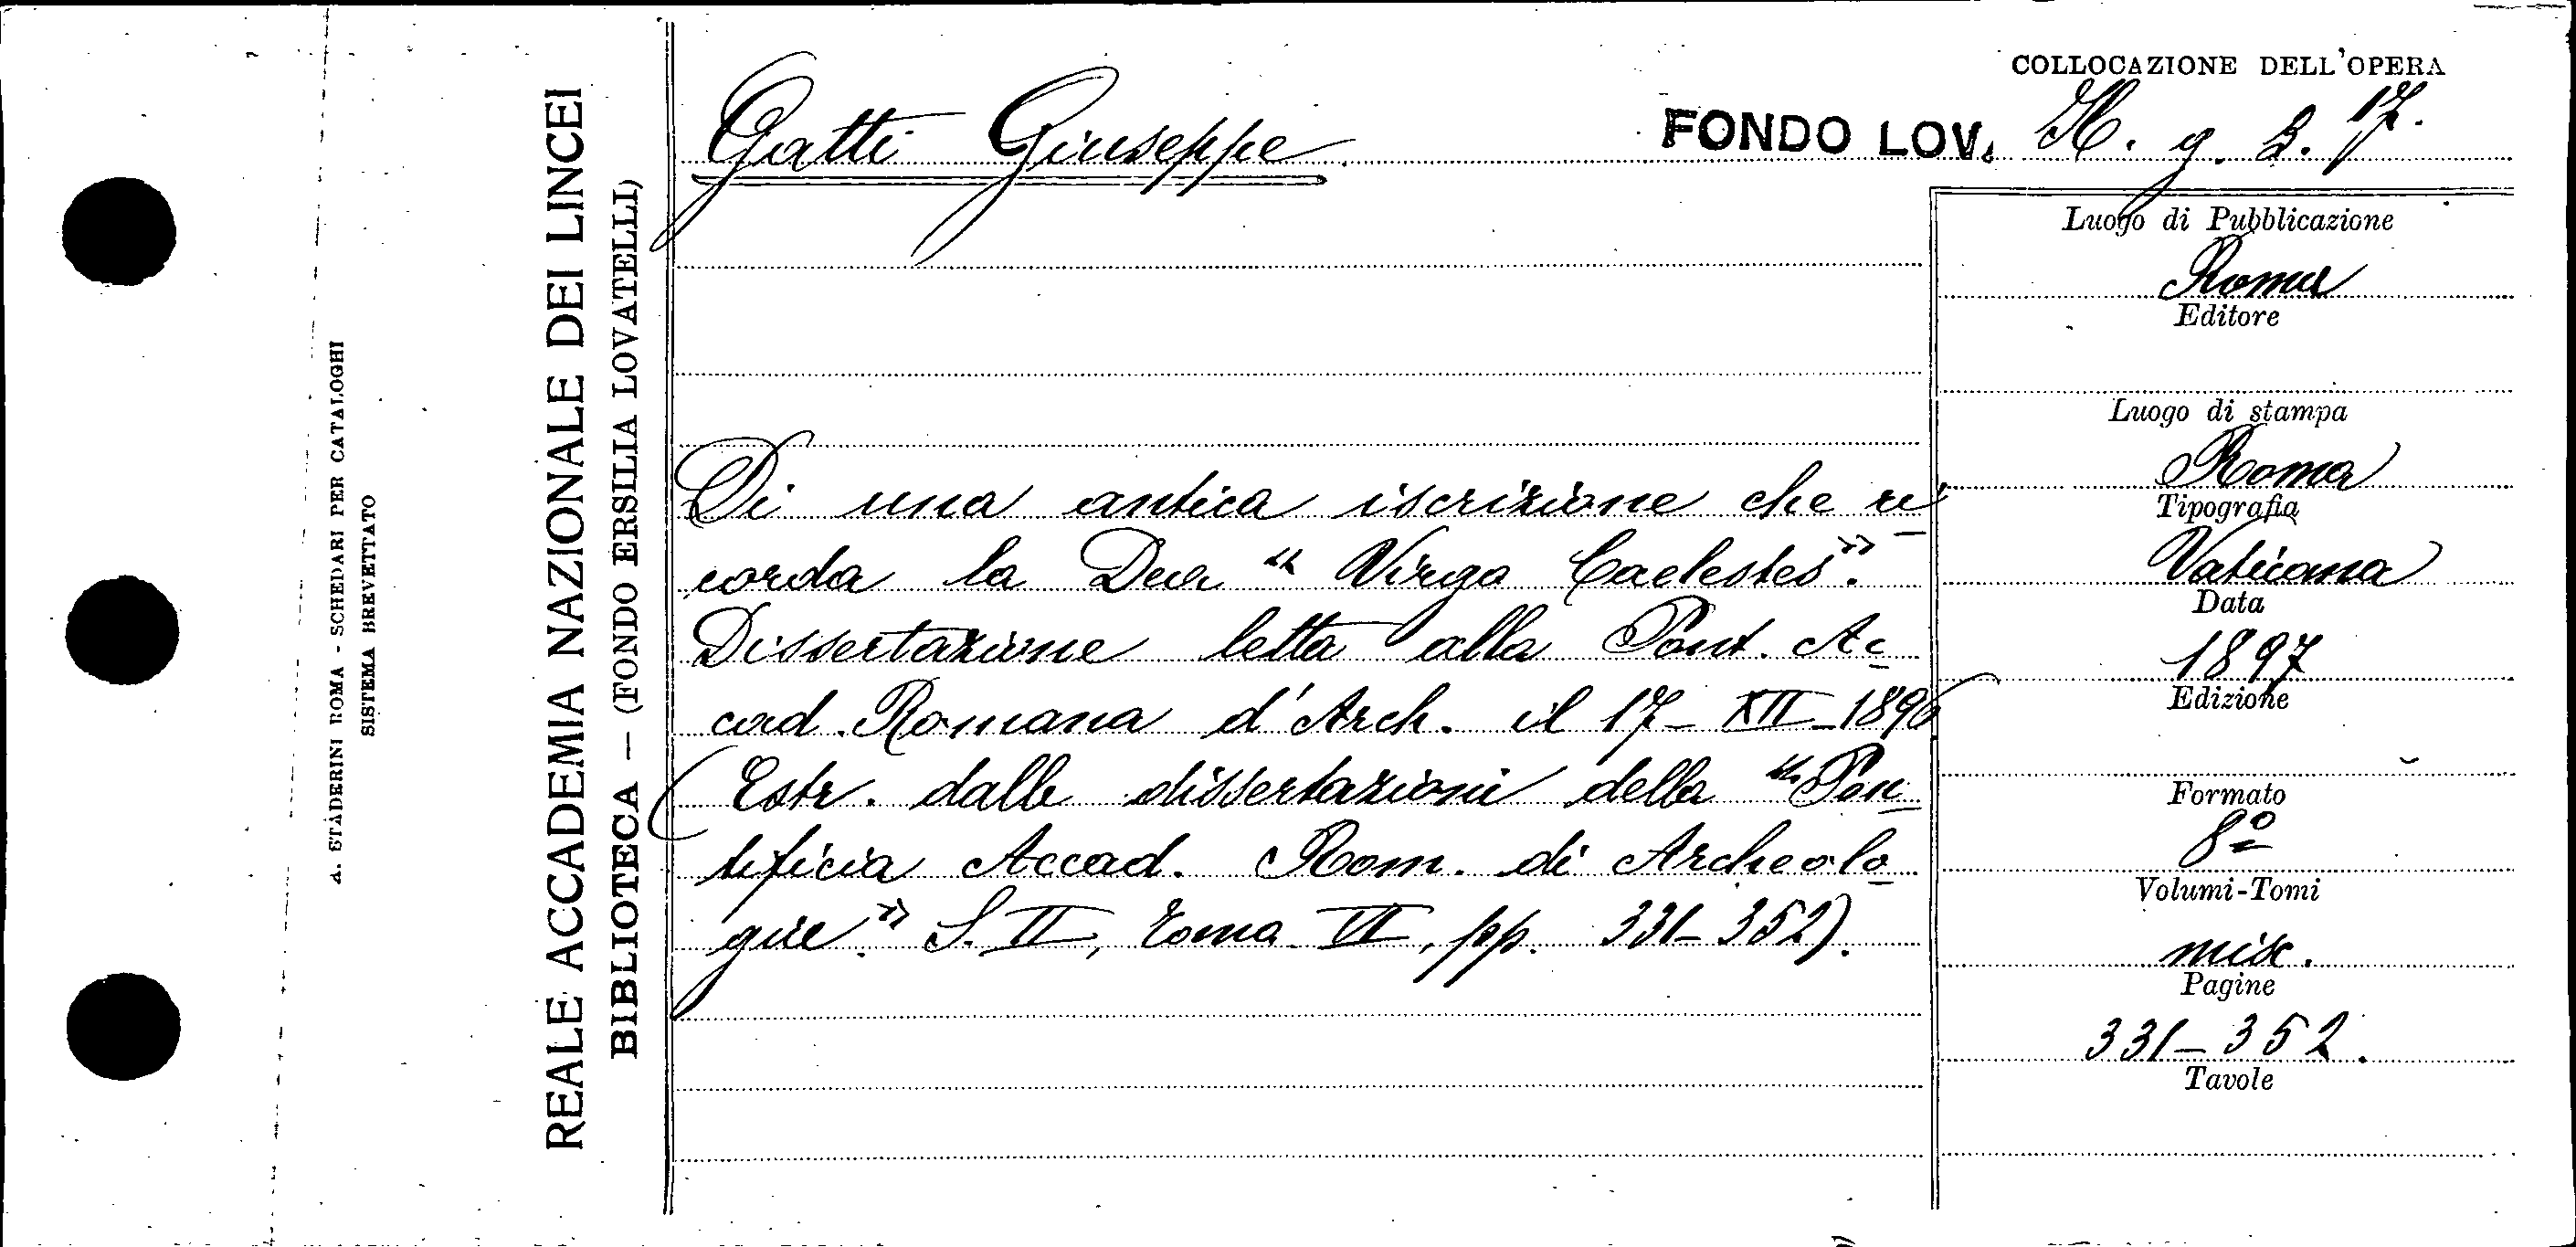 COLLOCAZIONE DELL'OPERA
Gatti Giuseppe.
FONDO LOV. H. g. 3. 17.
Di una antica iscrizione che ri-
corda la Dea “ Virgo Caelestes”.
Dissertazione letta alla Pont. Ac-
cad. Romana d'Arch. il 17- XII-1896
(Estr. dalle dissertazioni della “Pon-
tificia Accad. Rom. di Archeolo-
gia.” S. II, Tomo VI, pp. 331-352).
Luogo di Pubblicazione
Roma
Editore
Luogo di stampa
Roma
Tipografia
Vaticana
Data
1897
Edizione
Formato
8º
Volumi-Tomi
misc.
Pagine
331-352.
Tavole
REALE ACCADEMIA NAZIONALE DEI LINCEI
BIBLIOTECA — (FONDO ERSILIA LOVATELLI)
A. STADERINI ROMA - SCHEDARI PER CATALOGHI
SISTEMA BREVETTATO